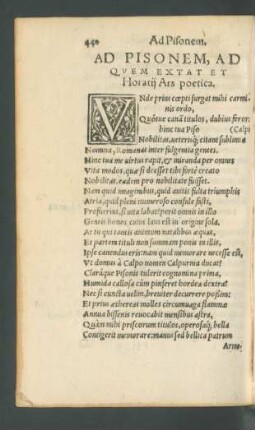 440 Ad Pisonem.
AD PISONEM, AD
QVEM EXTAT ET
Horatij Ars poetica.
VNde prius cœpti surgat mihi carmi-
nis ordo,
Quósue canã titulos, dubius feror:
hinc tua Piso (Calpi
Nobilitas, ueterisq́; citant sublime
Nomina, Romanas inter fulgentia gentes.
Hinc tua me uirtus rapit, & miranda per omnes
Vita modos, quæ si deesset tibi forte creato
Nobilitas, eadem pro nobilitate fuisset.
Nam quid imaginibus, quid auitis fulta triumphis
Atria, quid pleni numeroso consule fasti,
Profuerint, si uita labat? perit omnis in illo
Gentis honos, cuius laus est in origine sola.
At tu qui tantis animum natalibus æquas,
Et partem tituli non summam ponis in illis,
Ipse canendus eris: nam quid memorare necesse est,
Vt domus à Calpo nomen Calpurnia ducat
Claráque Pisonis tulerit cognomina prima,
Humida callosa cùm pinseret hordea dextra?
Nec si cuncta uelim, breuiter decurrere possim:
Et prius æthereas moles circumuaga flammæ
Annua bissenis reuocabit mensibus astra,
Quàm mihi priscorum titulos, operosaq́; bella
Contigerit memorare: manus sed bellica patrum
Armo-